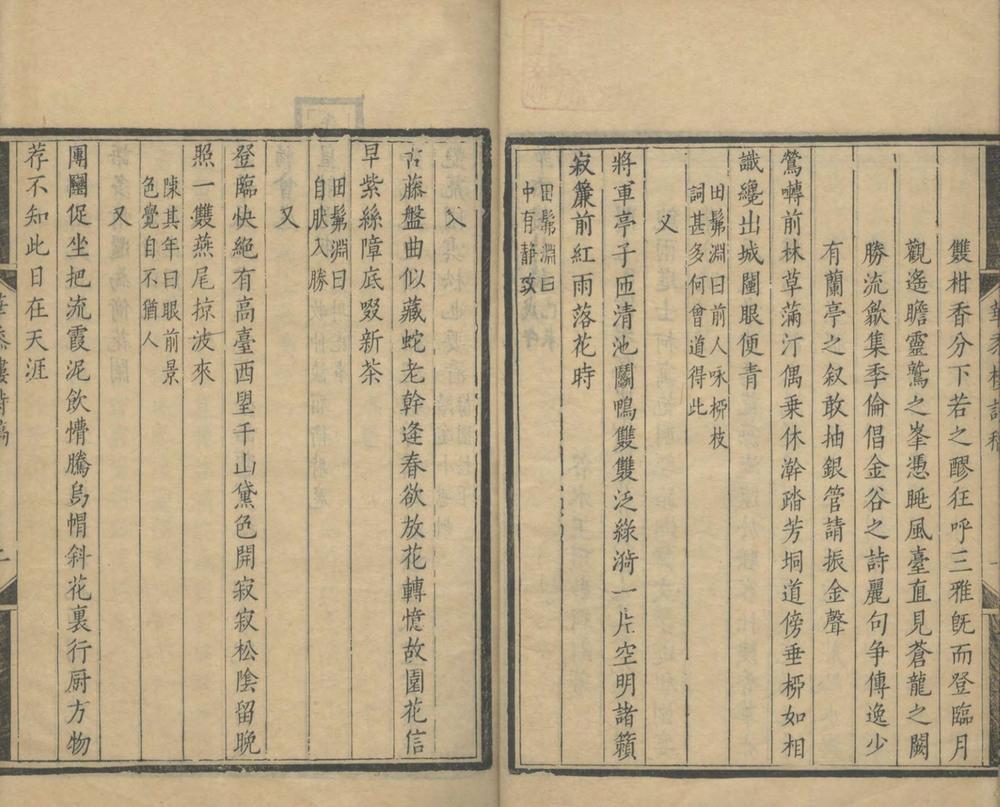 雙柑香分下若之醪狂呼三雅旣而登臨月
觀遙瞻靈鷲之峯憑睡風臺直見蒼龍之闕
勝流歙集季倫倡金谷之詩麗句爭傳逸少
有蘭亭之叙敢抽銀管請振金聲
鶯囀前林草滿汀偶乗休澣踏芳坰道傍垂桺如相
識纔出城闉眼便青
田髴淵曰前人咏桺枝
詞甚多何曾道得此
又
將軍亭子匝清池鬬鴨雙雙泛綠漪一片空明諸籟
寂簾前紅雨落花時
田髴淵曰
中有静攷
又
古藤盤曲似藏蛇老幹逢春欲放花轉憶故園花信
早紫絲障底啜新茶
田髴淵曰
自肰入勝
又
登臨快絶有高臺西朢千山黛色開寂寂松陰留晚
照一雙燕尾掠波來
陳其年曰眼前景
色覺自不猶人
又
團圞促坐把流霞泥飲懵騰烏帽斜花裏行厨方物
荐不知此日在天涯